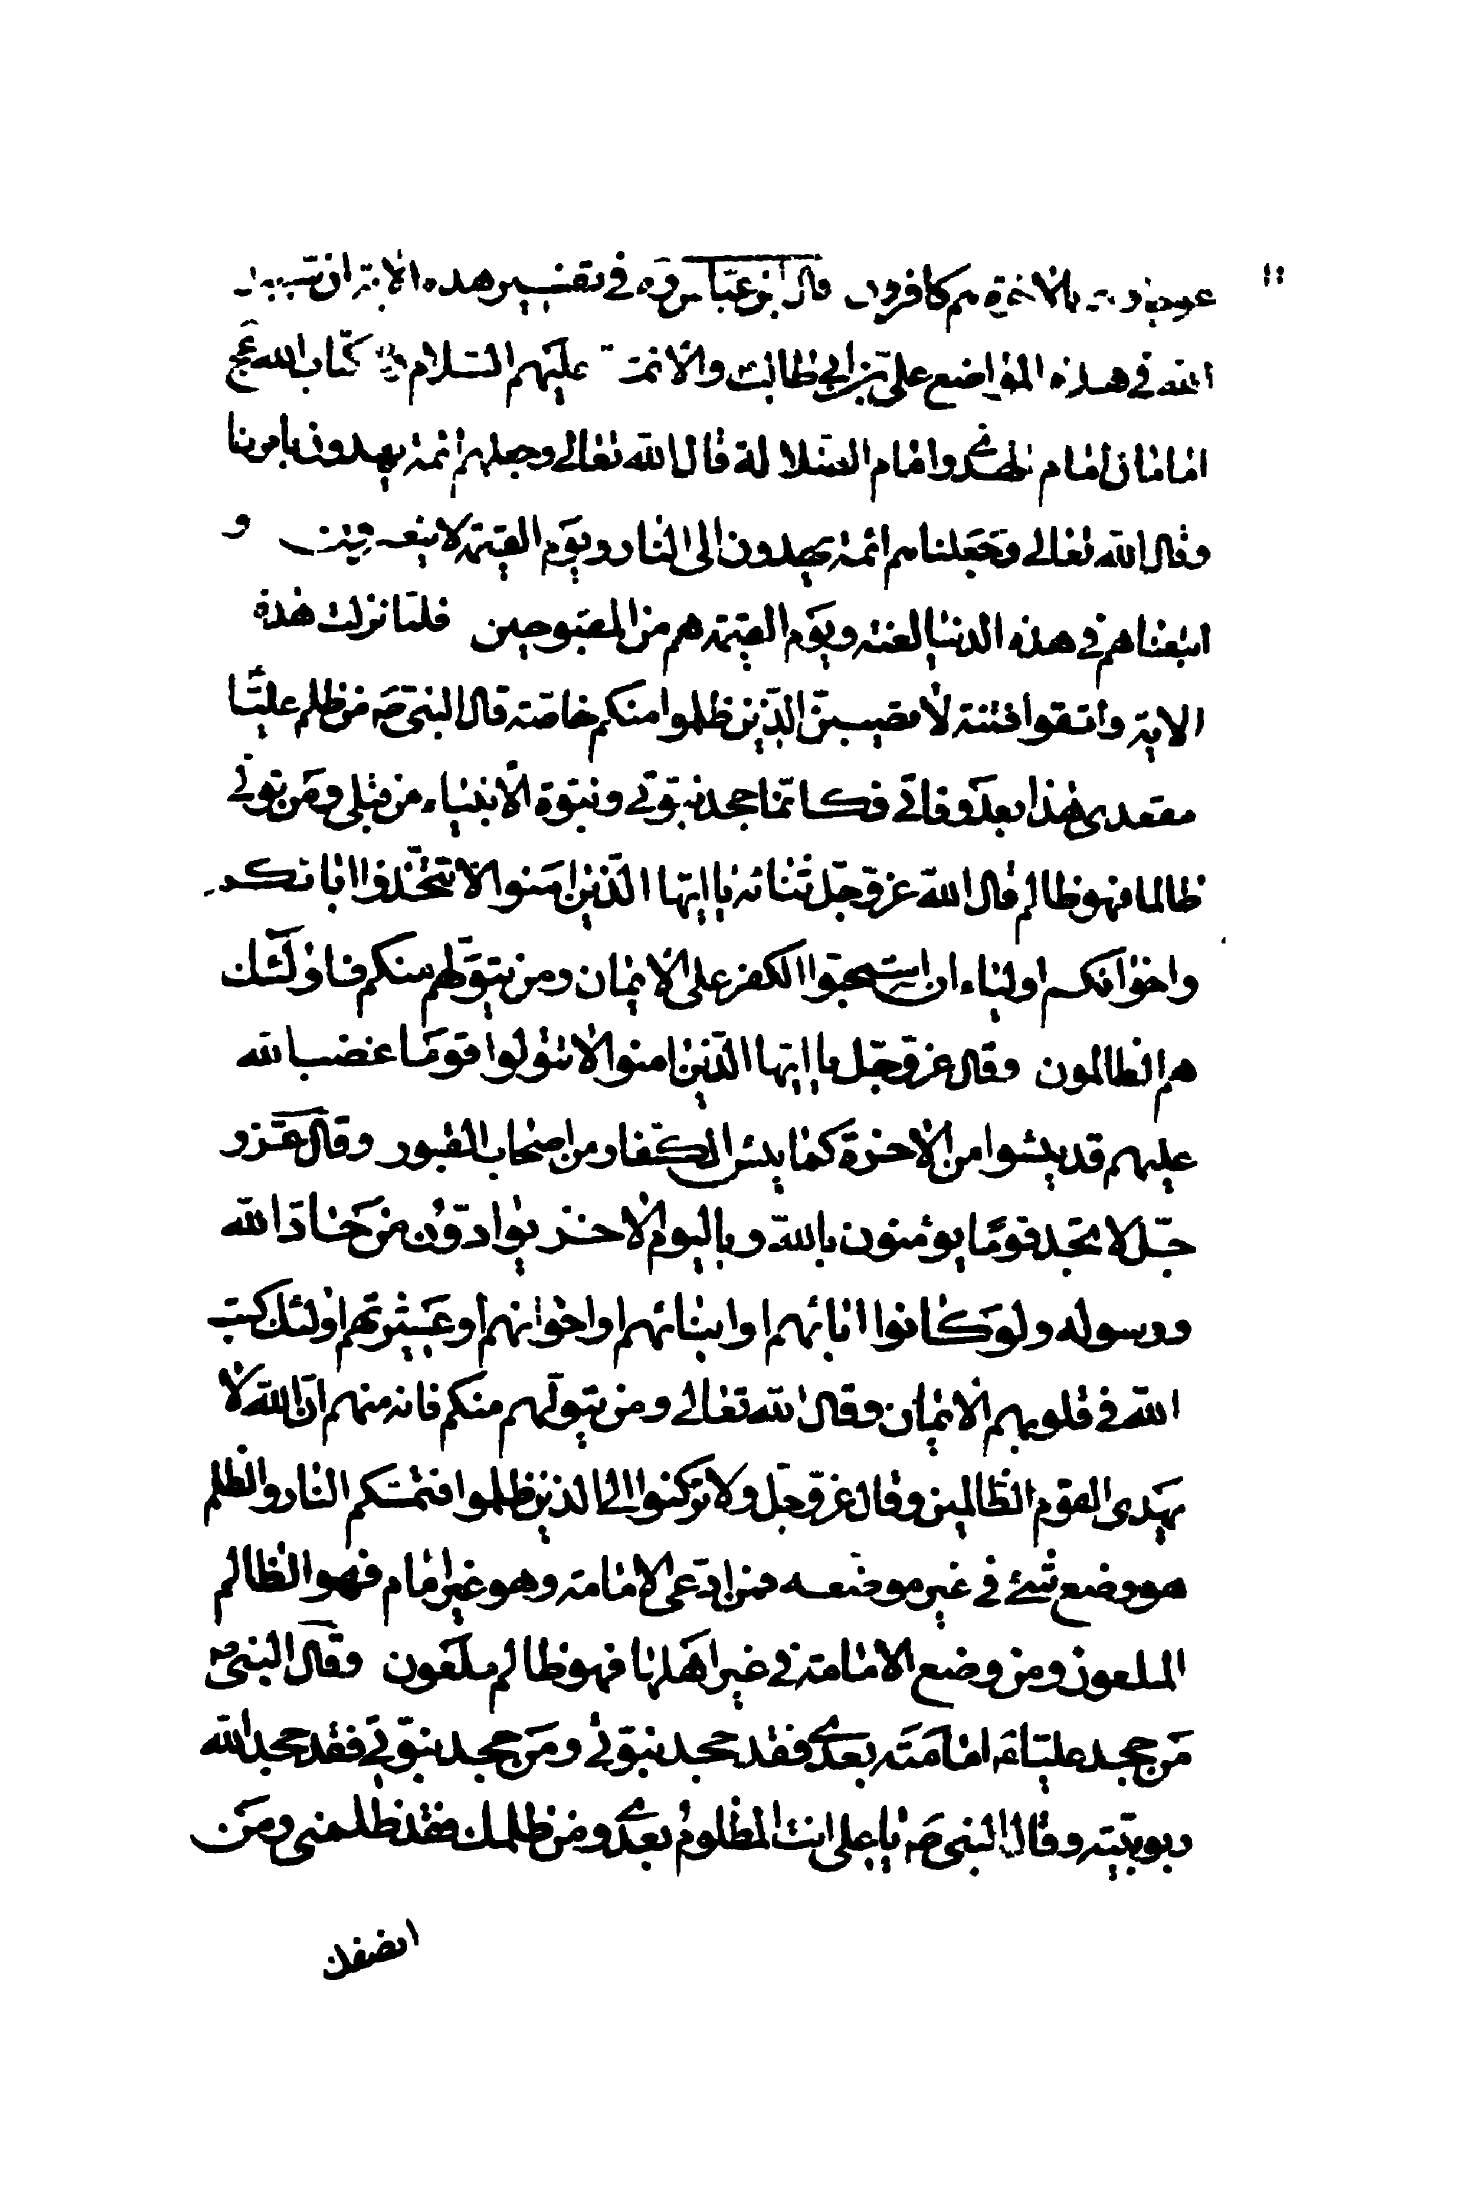 عوجا وهم بالاخرة هم كافرون قال ابن عباس ره في تفسير هذه الاية ان سبيل
الله في هذه المواضع علي بن ابي طالب والائمة عليهم السلام في كتاب الله عج
امامان امام الهدى وامام الضلالة قال الله تعالى وجعلهم ائمة يهدون بامرنا
وقال الله تعالى وجعلناهم ائمة يهدون الى النار ويوم القيمة لا ينصرون و
اتبعناهم في هذه الدنيا لعنة ويوم القيمة هم من المقبوحين فلما نزلت هذه
الاية واتقوا فتنة لا تصيبن الذين ظلموا منكم خاصة قال النبي صه من ظلم عليا
مقعدى هذا بعد وفاتي فكانما جحد نبوتي ونبوة الانبياء من قبلي ومن تولى
ظالما فهو ظالم قال الله عز وجل ثنائه يا ايها الذين امنوا لا تتخذوا ابائكم
واخوانكم اولياء ان استحبوا الكفر على الايمان ومن يتولهم منكم فاولئك
هم الظالمون وقال عز وجل يا ايها الذين امنوا لا تتولوا قوما غضب الله
عليهم قد يئسوا من الاخرة كما يئس الكفار من اصحاب القبور وقال عز و
جل لا تجد قوما يؤمنون بالله وباليوم الاخر يوادون من حاد الله
ورسوله ولو كانوا ابائهم او ابنائهم او اخوانهم او عشيرتهم اولئك كتب
الله في قلوبهم الايمان وقال الله تعالى ومن يتولهم منكم فانه منهم ان الله لا
يهدى القوم الظالمين وقال عز وجل ولا تركنوا الى الذين ظلموا فتمسكم النار والظلم
هو وضع شئ في غير موضعه فمن ادعى الامامة وهو غير امام فهو الظالم
الملعون ومن وضع الامامة في غير اهلها فهو ظالم ملعون وقال النبي ص
من جحد عليا ع امامته بعدي فقد جحد نبوتي ومن جحد نبوتي فقد جحد الله
ربوبيته وقال النبي صه يا علي انت المظلوم بعدي ومن ظلمك فقد ظلمني ومن
انصفك